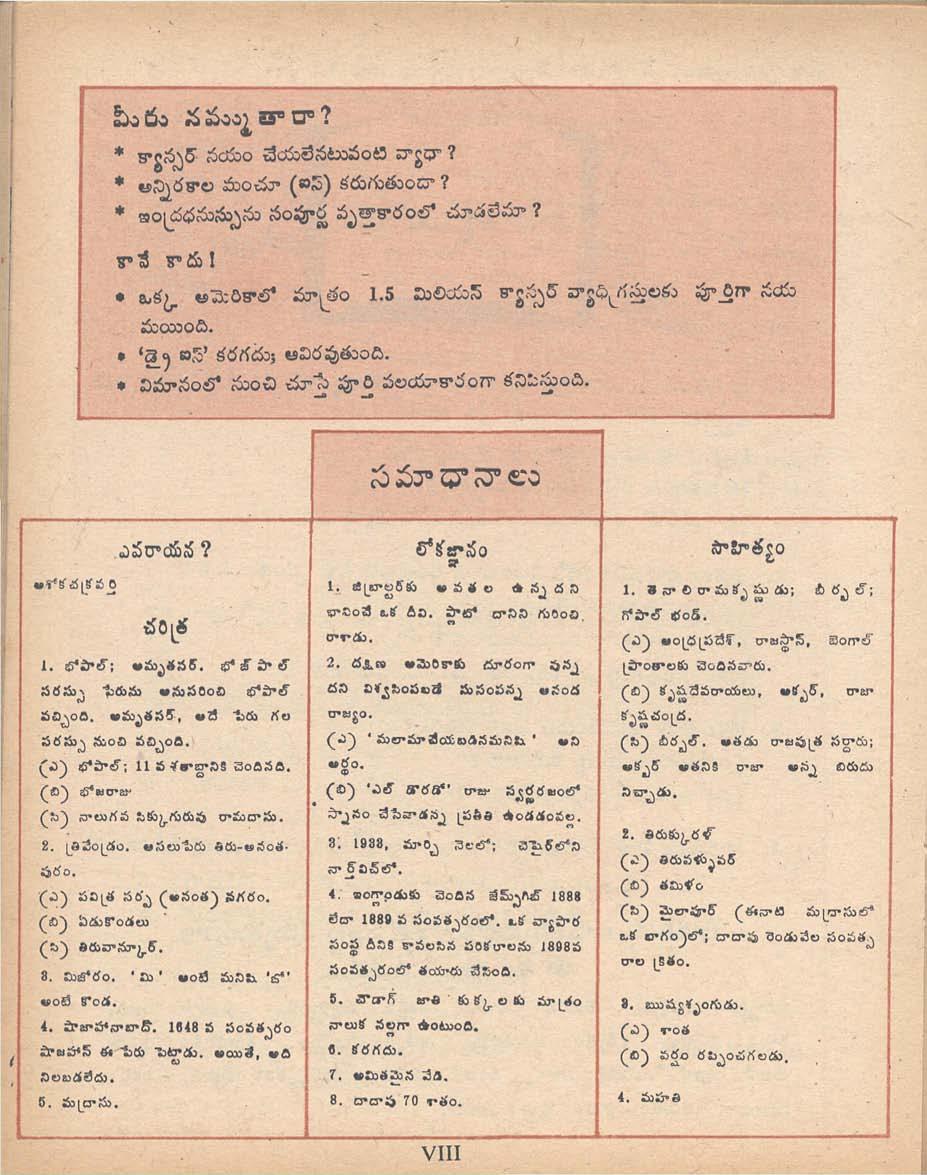 మీరు నమ్ముతారా?
* క్యాన్సర్ నయం చేయలేనటువంటి వ్యాధా?
* అన్నిరకాల మంచూ (ఐస్) కరుగుతుందా?
* ఇంద్రధనుస్సును సంపూర్ణ వృత్తాకారంలో చూడలేమా?
కానే కాదు!
* ఒక్క అమెరికాలో మాత్రం 1.5 మిలియన్ క్యాన్సర్ వ్యాధిగ్రస్తులకు పూర్తిగా నయ
మయింది.
* ‘డ్రై ఐస్’ కరగదు; ఆవిరవుతుంది.
* విమానంలో నుంచి చూస్తే పూర్తి వలయాకారంగా కనిపిస్తుంది.
సమాధానాలు
ఎవరాయన?
అశోకచక్రవర్తి
చరిత్ర
1. భోపాల్; అమృతసర్. భోజ్‌పాల్
సరస్సు పేరును అనుసరించి భోపాల్
వచ్చింది. అమృతసర్, అదే పేరు గల
సరస్సు నుంచి వచ్చింది.
(ఎ) భోపాల్; 11 వ శతాబ్దానికి చెందినది.
(బి) భోజరాజు
(సి) నాలుగవ సిక్కుగురువు రామదాసు.
2. త్రివేండ్రం. అసలుపేరు తిరు-అనంత-
పురం.
(ఎ) పవిత్ర సర్ప (అనంత) నగరం.
(బి) ఏడుకొండలు
(సి) తిరువాన్కూర్.
3. మిజోరం. ‘మి’ అంటే మనిషి ‘జో’
అంటే కొండ.
4. షాజాహానాబాద్. 1648 వ సంవత్సరం
షాజహాన్ ఈ పేరు పెట్టాడు. అయితే, అది
నిలబడలేదు.
5. మద్రాసు.
లోకజ్ఞానం
1. జిబ్రాల్టర్‌కు అవతల ఉన్నదని
భావించే ఒక దీవి. ప్లాటో దానిని గురించి
రాశాడు.
2. దక్షిణ అమెరికాకు దూరంగా వున్న
దని విశ్వసింపబడే సుసంపన్న ఆనంద
రాజ్యం.
(ఎ) ‘మలామాచేయబడినమనిషి’ అని
అర్థం.
(బి) ‘ఎల్ డొరడో’ రాజు స్వర్ణరజంలో
స్నానం చేసేవాడన్న ప్రతీతి ఉండడంవల్ల.
3. 1933, మార్చి నెలలో; చెషైర్‌లోని
నార్త్‌విచ్‌లో.
4. ఇంగ్లాండుకు చెందిన జేమ్స్‌గిబ్ 1888
లేదా 1889 వ సంవత్సరంలో. ఒక వ్యాపార
సంస్థ దీనికి కావలసిన పరికరాలను 1898వ
సంవత్సరంలో తయారు చేసింది.
5. చౌడాగ్ జాతి కుక్కలకు మాత్రం
నాలుక నల్లగా ఉంటుంది.
6. కరగదు.
7. అమితమైన వేడి.
8. దాదాపు 70 శాతం.
సాహిత్యం
1. తెనాలిరామకృష్ణుడు; బీర్బల్;
గోపాల్ భండ్.
(ఎ) ఆంధ్రప్రదేశ్, రాజస్థాన్, బెంగాల్
ప్రాంతాలకు చెందినవారు.
(బి) కృష్ణదేవరాయలు, అక్బర్, రాజా
కృష్ణచంద్ర.
(సి) బీర్బల్. అతడు రాజపుత్ర సర్దారు;
అక్బర్ అతనికి రాజా అన్న బిరుదు
నిచ్చాడు.
2. తిరుక్కురళ్
(ఎ) తిరువళ్ళువర్
(బి) తమిళం
(సి) మైలాపూర్ (ఈనాటి మద్రాసులో
ఒక భాగం)లో; దాదాపు రెండువేల సంవత్స
రాల క్రితం.
3. ఋష్యశృంగుడు.
(ఎ) శాంత
(బి) వర్షం రప్పించగలడు.
4. మహతి
VIII